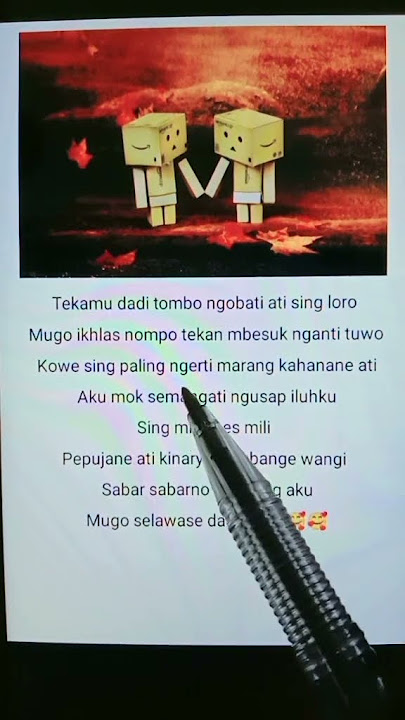 Tekamu dadi tombo ngobati ati sing loro
Mugo ikhlas nompo tekan mbesuk nganti tuwo
Kowe sing paling ngerti marang kahanane ati
Aku mok semangati ngusap iluhku
Sing mili
Pepujane ati wangi
Sabar sabarno aku
Mugo selawase 🥰🥰